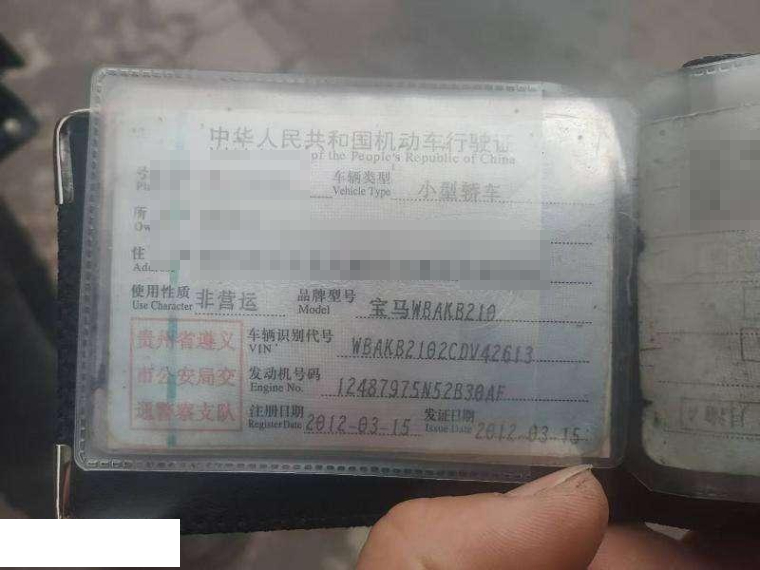 中华人民共和国机动车行驶证
of the People's Republic of China
车辆类型 小型轿车
Vehicle Type
所
住
使用性质 非营运 品牌型号 宝马WBAKB210
Use Character Model
贵州省遵义
市公安局交
通警察支队
车辆识别代号 WBAKB2102CDV42613
VIN
发动机号码 12487975N52B30AF
Engine No.
注册日期 2012-03-15 发证日期 2012-03-15
Register Date Issue Date